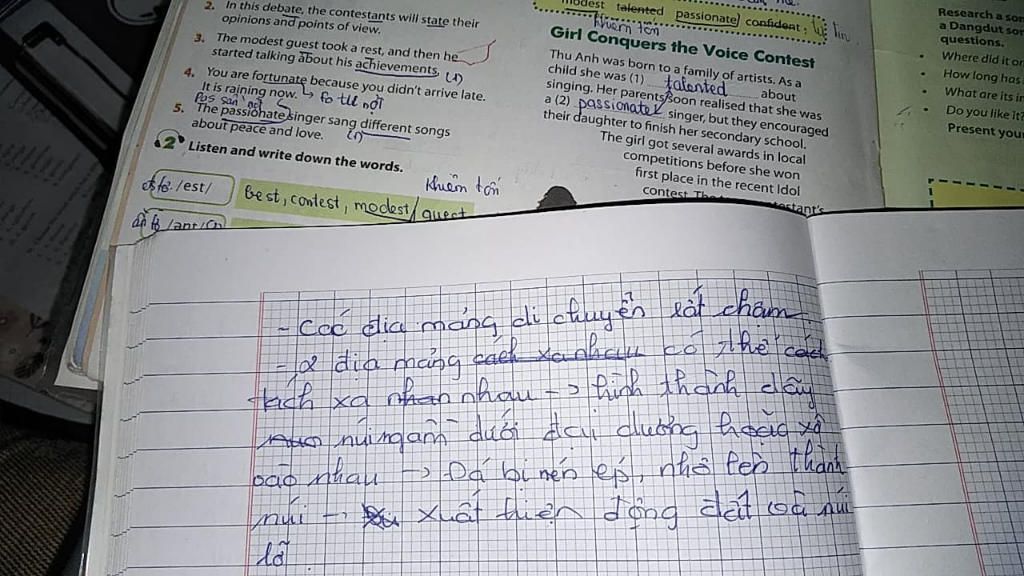 modest talented passionate confident,
2. In this debate, the contestants will state their
opinions and points of view.
3. The modest guest took a rest, and then he
started talking about his achievements. (1)
4. You are fortunate because you didn't arrive late.
It is raining now.
5. The passionate singer sang different songs
about peace and love. (1)
2 Listen and write down the words.
/est/
best, contest, modest/ guest
khiêm tốn
/ənt/
khiêm tốn
Girl Conquers the Voice Contest
Thu Anh was born to a family of artists. As a
child she was (1) talented about
singing. Her parents soon realised that she was
a (2) passionate singer, but they encouraged
their daughter to finish her secondary school.
The girl got several awards in local
competitions before she won
first place in the recent Idol
contest.
a Dangdut
questions.
• Where did it
• How long has
• What are its
• Do you like it?
Present your
- Các địa mảng di chuyển rất chậm
- 2 địa mảng cách xa nhau có thể cách
tách xa nhau -> hình thành dãy
núi ngầm dưới đại dương hoặc xô
vào nhau -> Đá bị nén ép, nhô lên thành
núi -> xuất hiện động đất và núi
lở